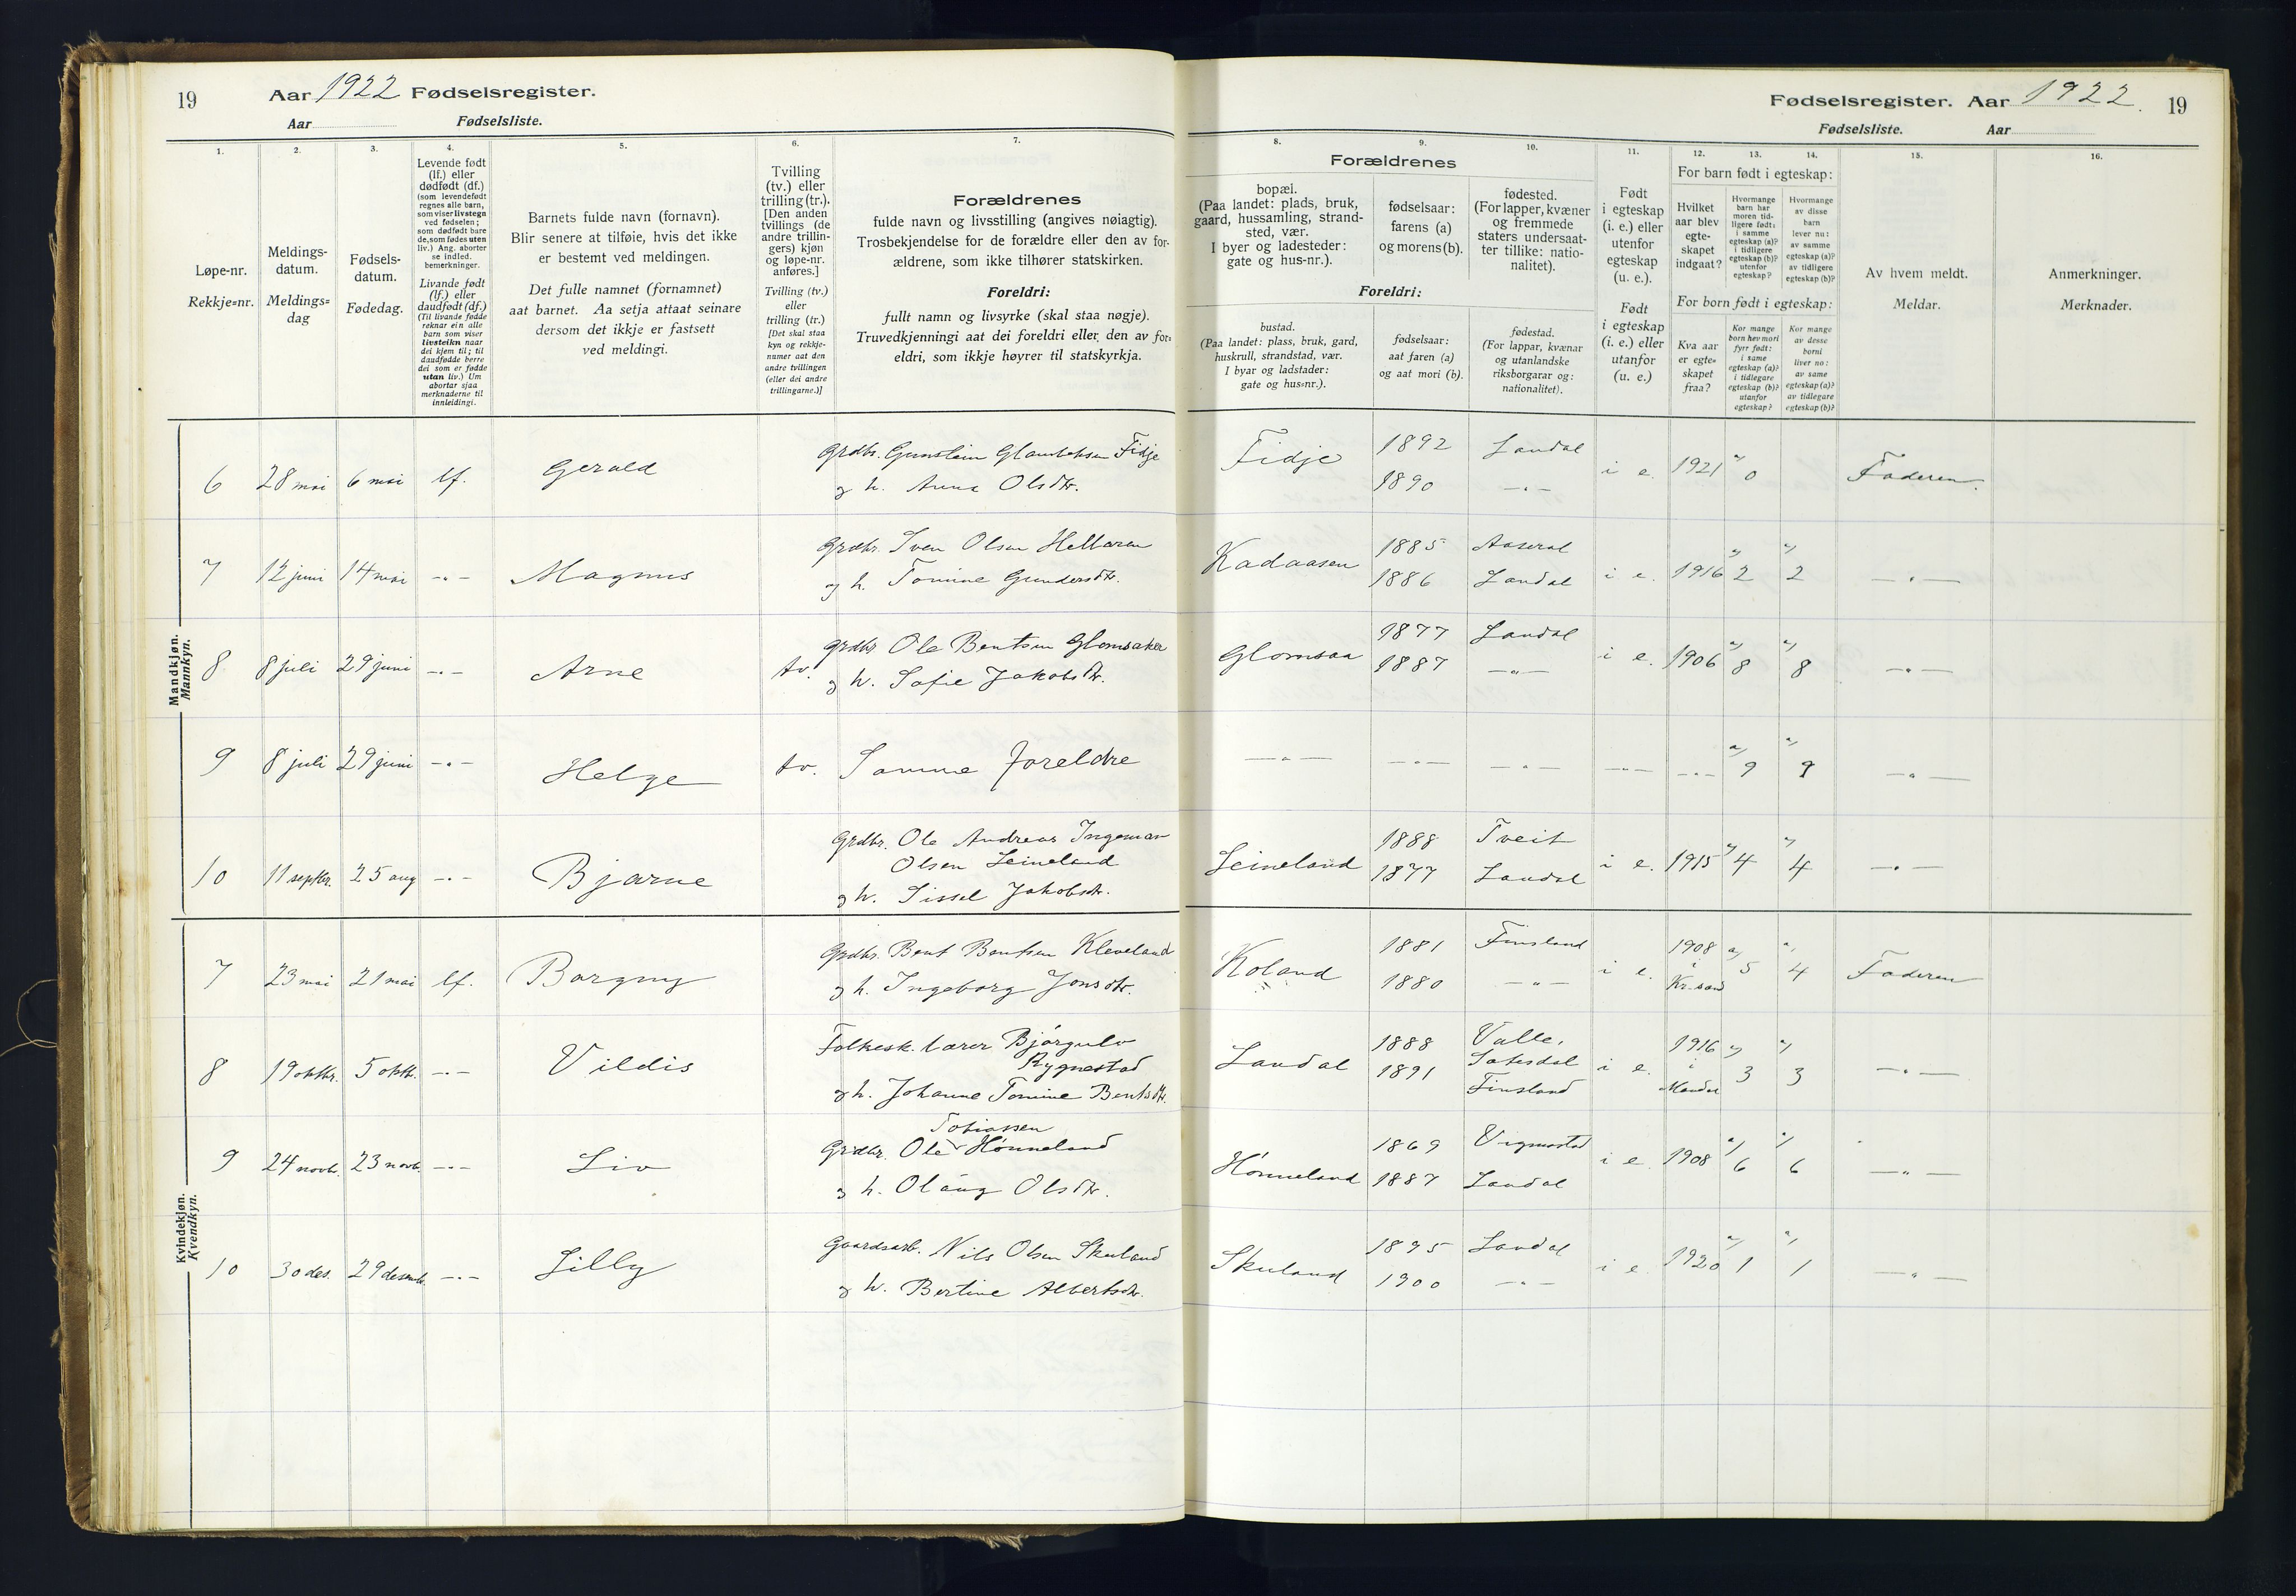 19
Aar 1922 Fødselsregister.
Aar Fødselsliste.
1.
Løpe-nr.
Rekkje=nr.
2.
Meldings-
datum.
Meldings=
dag
3.
Fødsels-
datum.
Fødedag.
4.
Levende født
(lf.) eller
dødfødt (df.)
(som levendefødt
regnes alle barn,
som viser livstegn
ved fødselen;
som dødfødt bare
de, som fødes uten
liv.) Ang. aborter
se indled.
bemerkninger.
Livande født
(lf.) eller
daudfødt (df.)
(Til livande fødde
reknar ein alle
barn som viser
livsteikn naar
dei kjem til; til
daudfødde berre
dei som er fødde
utan liv.) Um
abortar sjaa
merknaderne til
innleidingi.
5.
Barnets fulde navn (fornavn).
Blir senere at tilføie, hvis det ikke
er bestemt ved meldingen.
Det fulle namnet (fornamnet)
aat barnet. Aa setja attaat seinare
dersom det ikkje er fastsett
ved meldingi.
6.
Tvilling
(tv.) eller
trilling (tr.).
[Den anden
tvillings (de
andre trillin-
gers) kjøn
og løpe-nr.
anføres.]
Tvilling (tv.)
eller
trilling (tr.)
[Det skal staa
kyn og rekkje-
numer aat den
andre tvillingen
(eller dei andre
trillingarne.)]
7.
Forældrenes
fulde navn og livsstilling (angives nøiagtig).
Trosbekjendelse for de forældre eller den av for-
ældrene, som ikke tilhører statskirken.
Foreldri:
fullt namn og livsyrke (skal staa nøgje).
Truvedkjenningi aat dei foreldri eller den av for-
eldri, som ikkje høyrer til statskyrkja.
Mandkjøn.
Mannkyn.
6 28 mai 6 mai lf. Gerald Grdbr. Gunstein Fidje
og h. Anna Olsdtr.
7 12 juni 14 mai -"- Magnus Grdbr. Sven Olsen Hellaren
og h. Tomine Gundersdtr.
8 8 juli 29 juni -"- Arne tv. Grdbr Ole Bentsen Glomsaker
og h. Sofie Jakobsdtr.
9 8 juli 29 juni -"- Helge tv. Samme foreldre
10 11 septbr. 25 aug -"- Bjarne Grdbr. Ole Andreas Ingeman
Olsen Leineland
og h. Sissel Jakobsdtr.
Kvindekjøn.
Kvendkyn.
7 23 mai 21 mai lf. Borgny Grdbr. Bent Bentsen Kleveland
og h. Ingeborg Jonsdtr.
8 19 oktbr. 5 oktb. -"- Vildis Folkesk. lærer Bjórgulv
Rygnestad
og h. Johanne Tomine Bentsdtr.
9 24 novb. 23 novb. -"- Liv Tobiassen
Grdbr. Ole Hónneland
og h. Olaug Olsdtr.
10 30 des. 29 desemb. -"- Lilly Gaardsarb. Nils Olsen Skuland
og h. Bertine Albertsdtr.
Fødselsregister. Aar 1922. 19
Fødselsliste. Aar
Forældrenes
8.
bopæl.
(Paa landet: plads, bruk,
gaard, hussamling, strand-
sted, vær.
I byer og ladesteder:
gate og hus-nr.).
9.
fødselsaar:
farens (a)
og morens (b).
10.
fødested.
(For lapper, kvæner
og fremmede
staters undersaat-
ter tillike: natio-
nalitet).
Foreldri:
bustad.
(Paa landet: plass, bruk, gard,
huskrull, strandstad, vær.
I byar og ladstader:
gate og hus=nr.).
fødselsaar:
aat faren (a)
og aat mori (b).
fødestad.
(For lappar, kvænar
og utanlandske
riksborgarar og:
nationalitet).
11.
Født
i egteskap
(i. e.) eller
utenfor
egteskap
(u. e.).
Født
i egteskap
(i. e.) eller
utanfor
(u. e.)
12. 13. 14.
For barn født i egteskap:
Hvilket
aar blev
egte-
skapet
indgaat?
Hvormange
barn har
moren tid-
ligere født:
i samme
egteskap (a)?
i tidligere
egteskap (b)?
utenfor
egteskap?
Hvormange
av disse
barn
lever nu:
av samme
egteskap (a)?
av tidligere
egteskap (b)?
For born født i egteskap:
Kva aar
er egte=
skapet
fraa?
Kor mange
born hev mori
fyrr født:
i same
egteskap (a)?
i tidlegare
egteskap (b)?
utanfor
egteskap?
Kor mange
av desse
borni
liver no:
av same
egteskap (a)?
av tidlegare
egteskap (b)?
15.
Av hvem meldt.
Meldar.
16.
Anmerkninger.
Merknader.
Fidje 1892 Laudal i e. 1921 a) 0 Faderen.
1890 -"-
Kadaasen 1885 Aaseral i e. 1916 a) 2 a) 2 -"-
1886 Laudal
Glomsaa 1877 Laudal i e. 1906 a) 8 a) 8 -"-
1887 -"-
-"- -"- -"- -"- -"- a) 9 a) 9 -"-
Leineland 1888 Tveit i e. 1915 a) 4 a) 4 -"-
1877 Laudal
Koland 1881 Finsland i e. 1908 i Kr.sand a) 5 a) 4 Faderen
1880 -"-
Laudal 1888 Valle, Setesdal i e. 1916 i Mandal a) 3 a) 3 -"-
1891 Finsland
Hónneland 1869 Vigmostad i e. 1908 a) 6 a) 6 -"-
1887 Laudal
Skuland 1895 Laudal i e. 1920 a) 1 a) 1 -"-
1900 -"-